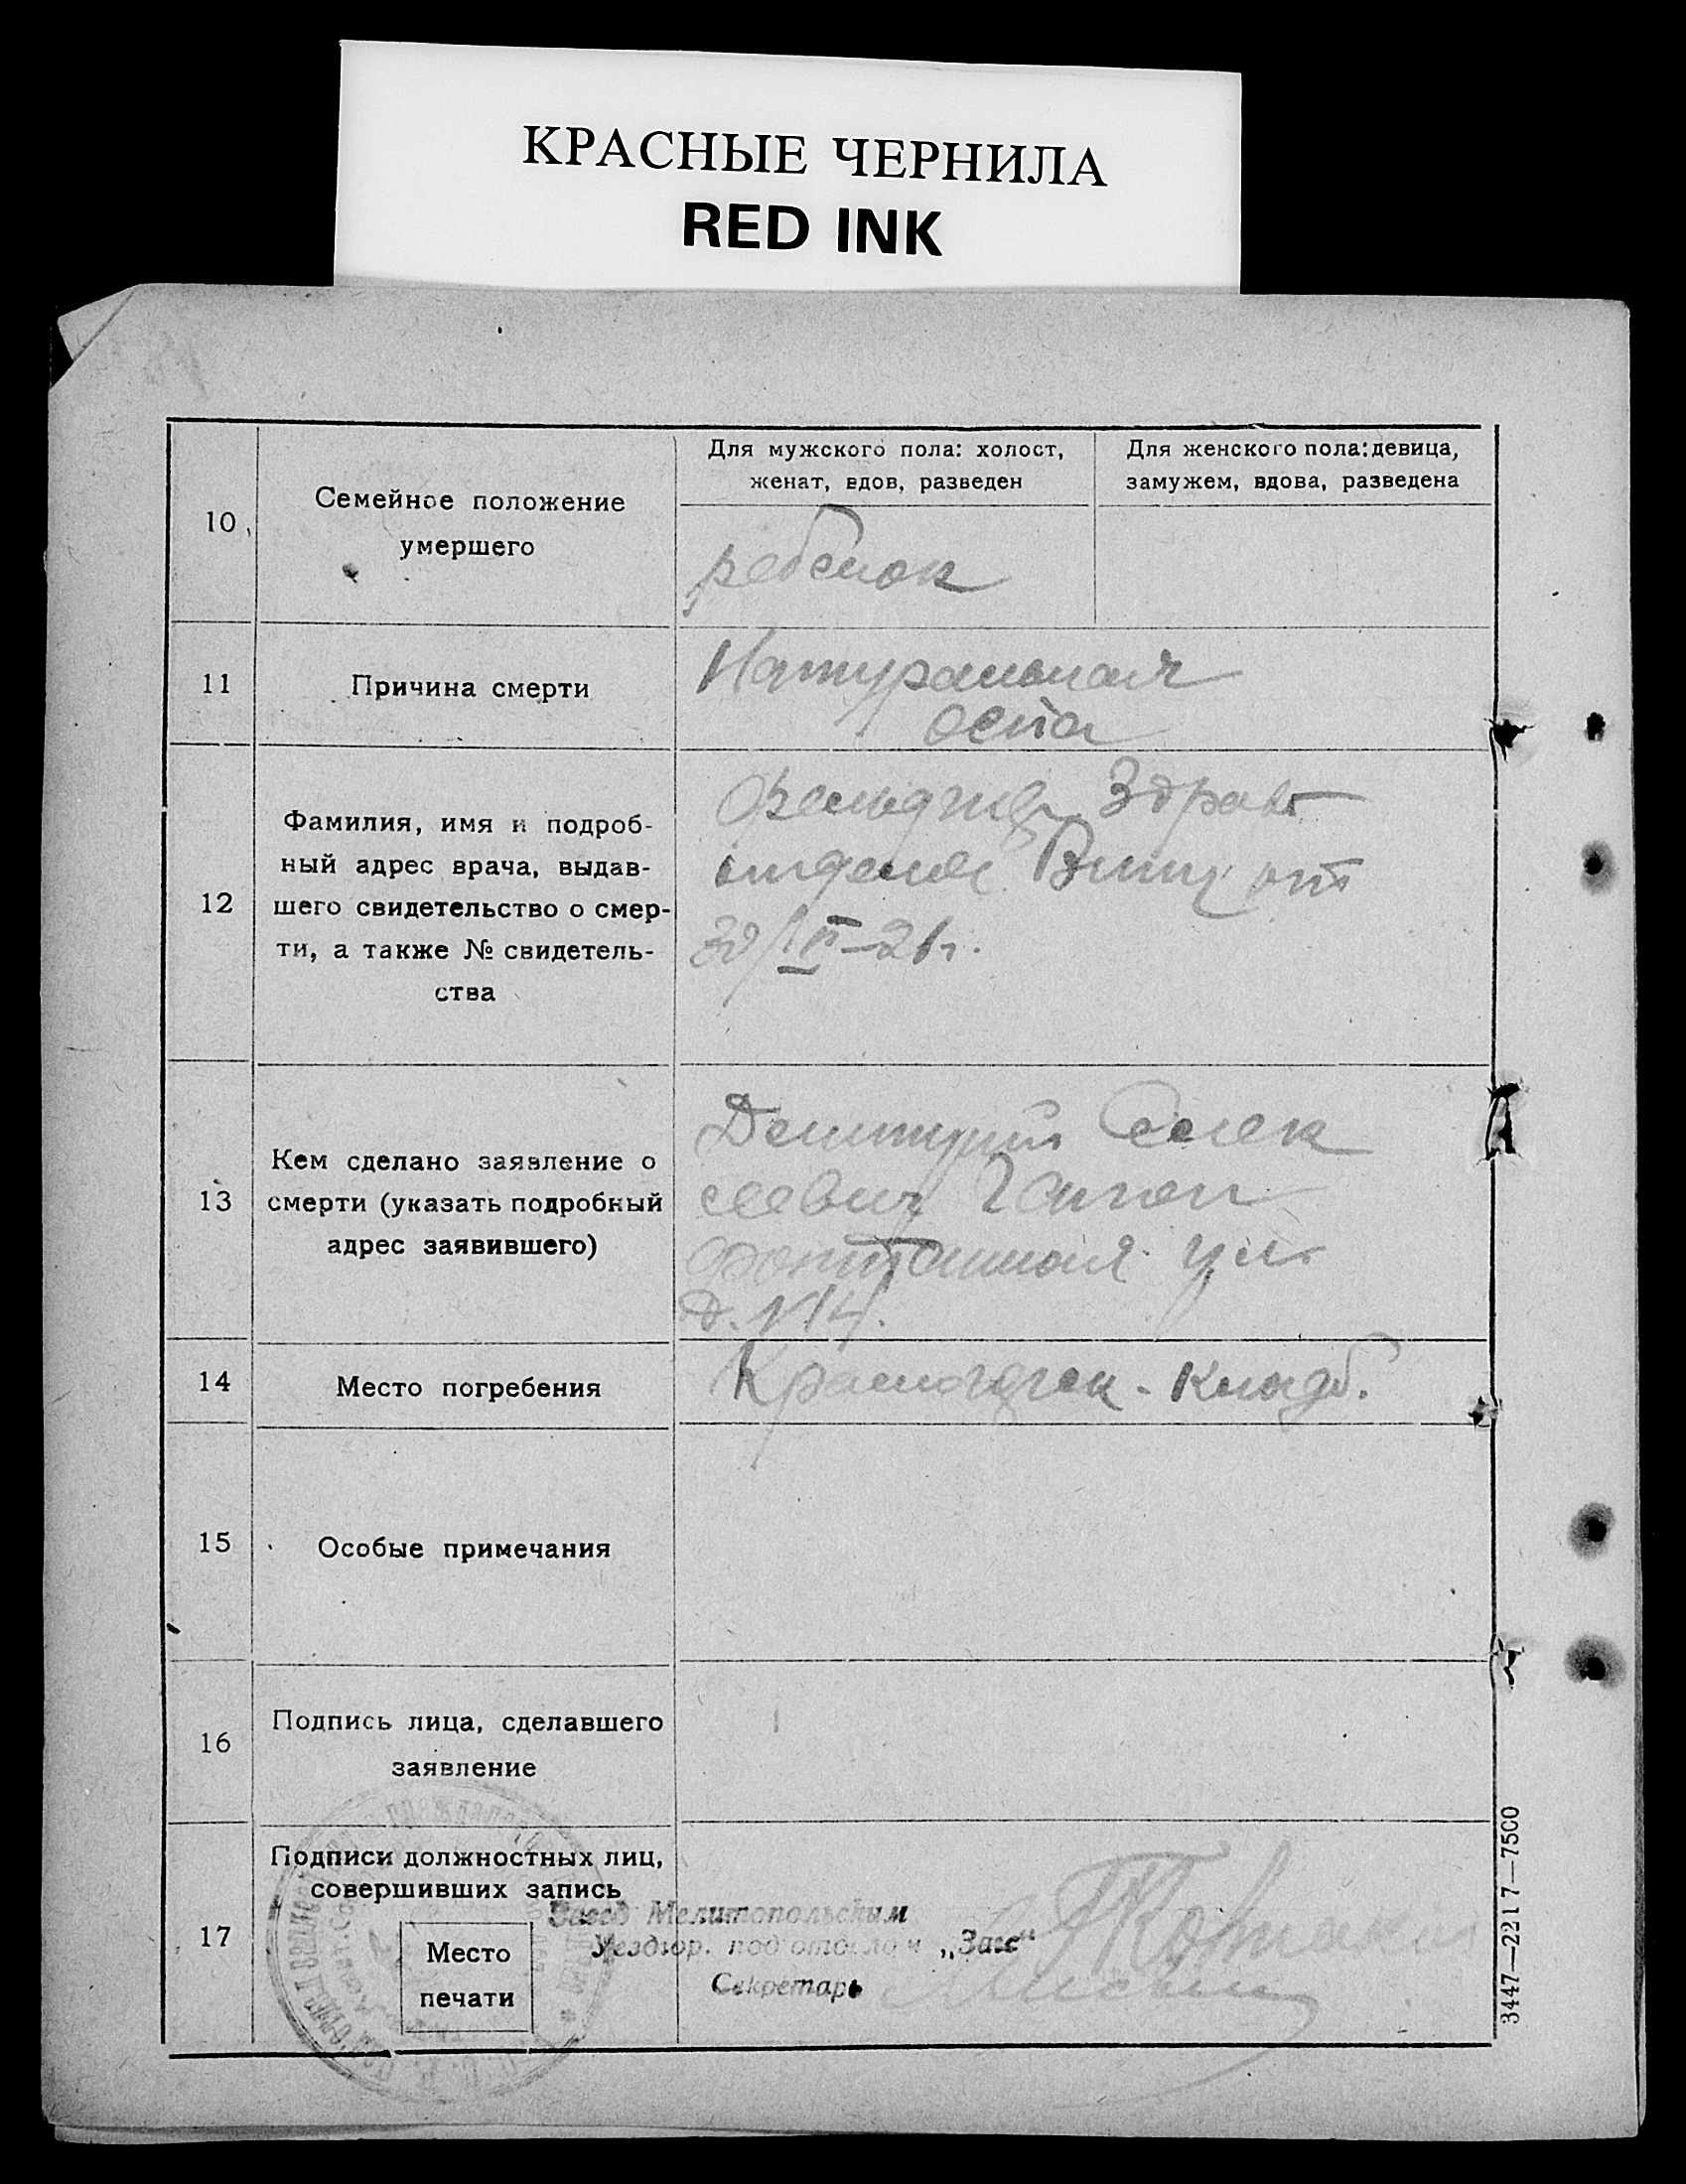 КРАСНЫЕ ЧЕРНИЛА
RED INK
10
Семейное положение
умершего
Для мужского пола: холост,
женат, вдов, разведен
Для женского пола: девица,
замужем, вдова, разведена
ребенок
11
Причина смерти
Натуральная
оспа
12
Фамилия, имя и подроб-
ный адрес врача, выдав-
шего свидетельство о смер-
ти, а также № свидетель-
ства
Здрав
от
21 г.
13
Кем сделано заявление о
смерти (указать подробный
адрес заявившего)
Дмитрий Алек
сеевич
Фонтанная ул.
д. №14.
14
Место погребения
Кладб.
15
Особые примечания
16
Подпись лица, сделавшего
заявление
17
Подписи должностных лиц,
совершивших запись
Место
печати
Завед Мелитопольским
Уездгор. подотделом „Загс"
Секретарь
3447—2217—7500